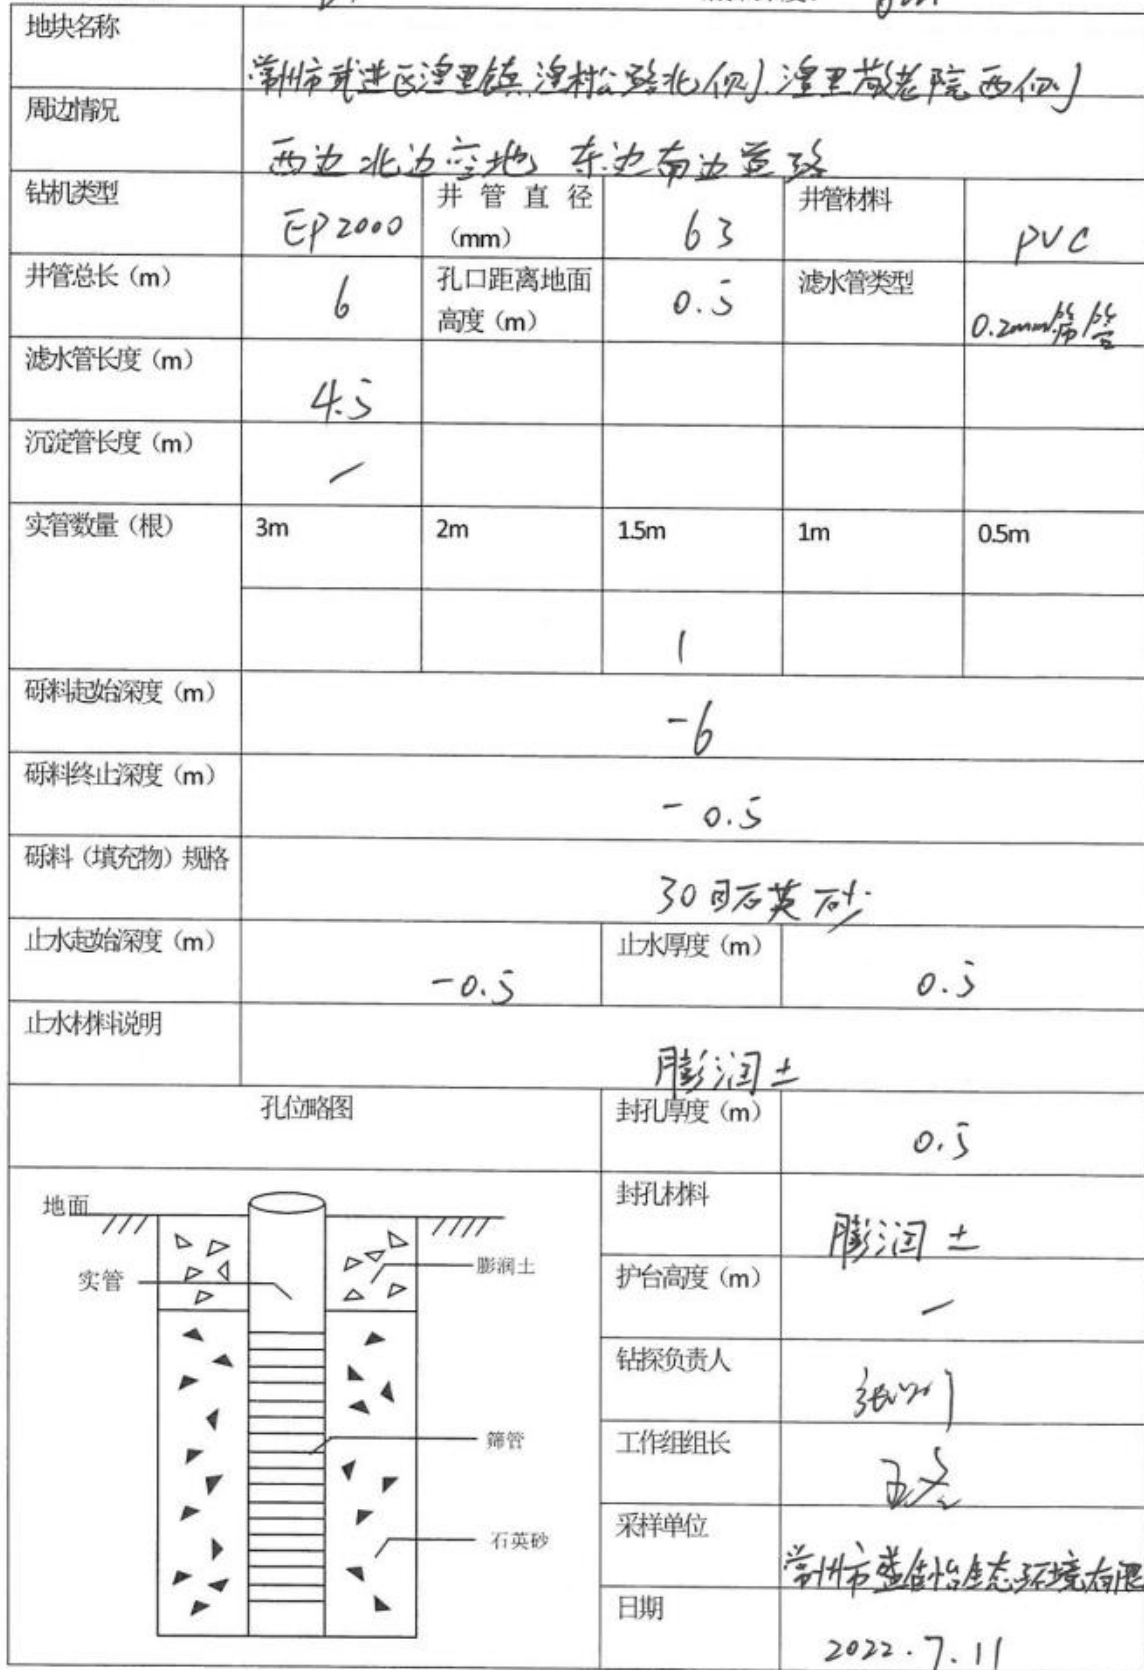 地块名称
常州市武进区湟里镇湟村公路北侧、湟里敬老院西侧
周边情况
西边北边空地 东边南边道路
钻机类型 EP2000 井管直径（mm） 63 井管材料 PVC
井管总长（m） 6 孔口距离地面高度（m） 0.5 滤水管类型 0.2mm筛管
滤水管长度（m） 4.5
沉淀管长度（m） /
实管数量（根） 3m 2m 1.5m 1m 0.5m
1
砾料起始深度（m） -6
砾料终止深度（m） -0.5
砾料（填充物）规格 30目石英砂
止水起始深度（m） -0.5 止水厚度（m） 0.5
止水材料说明 膨润土
孔位略图 封孔厚度（m） 0.5
封孔材料 膨润土
护台高度（m） /
钻探负责人
工作组组长
采样单位 常州市生态环境有限
日期 2022.7.11
地面
实管
膨润土
筛管
石英砂